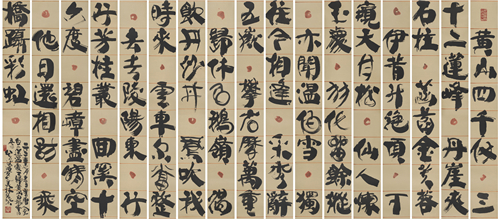 黃山四千仞三
十二蓮峰丹崖夾
石柱菡萏金芙蓉
伊昔升絕頂下
窺天目松仙人煉
玉處羽化留餘蹤
亦聞溫伯雪獨
往今相逢采秀辭
五嶽攀岩歷萬重
歸休白鵝嶺渴
飲丹砂井鳳吹我
時來雲車爾當整
去去陵陽東行
行芳桂叢回溪十
六度碧嶂盡晴空
他日還相訪乘
橋躡彩虹